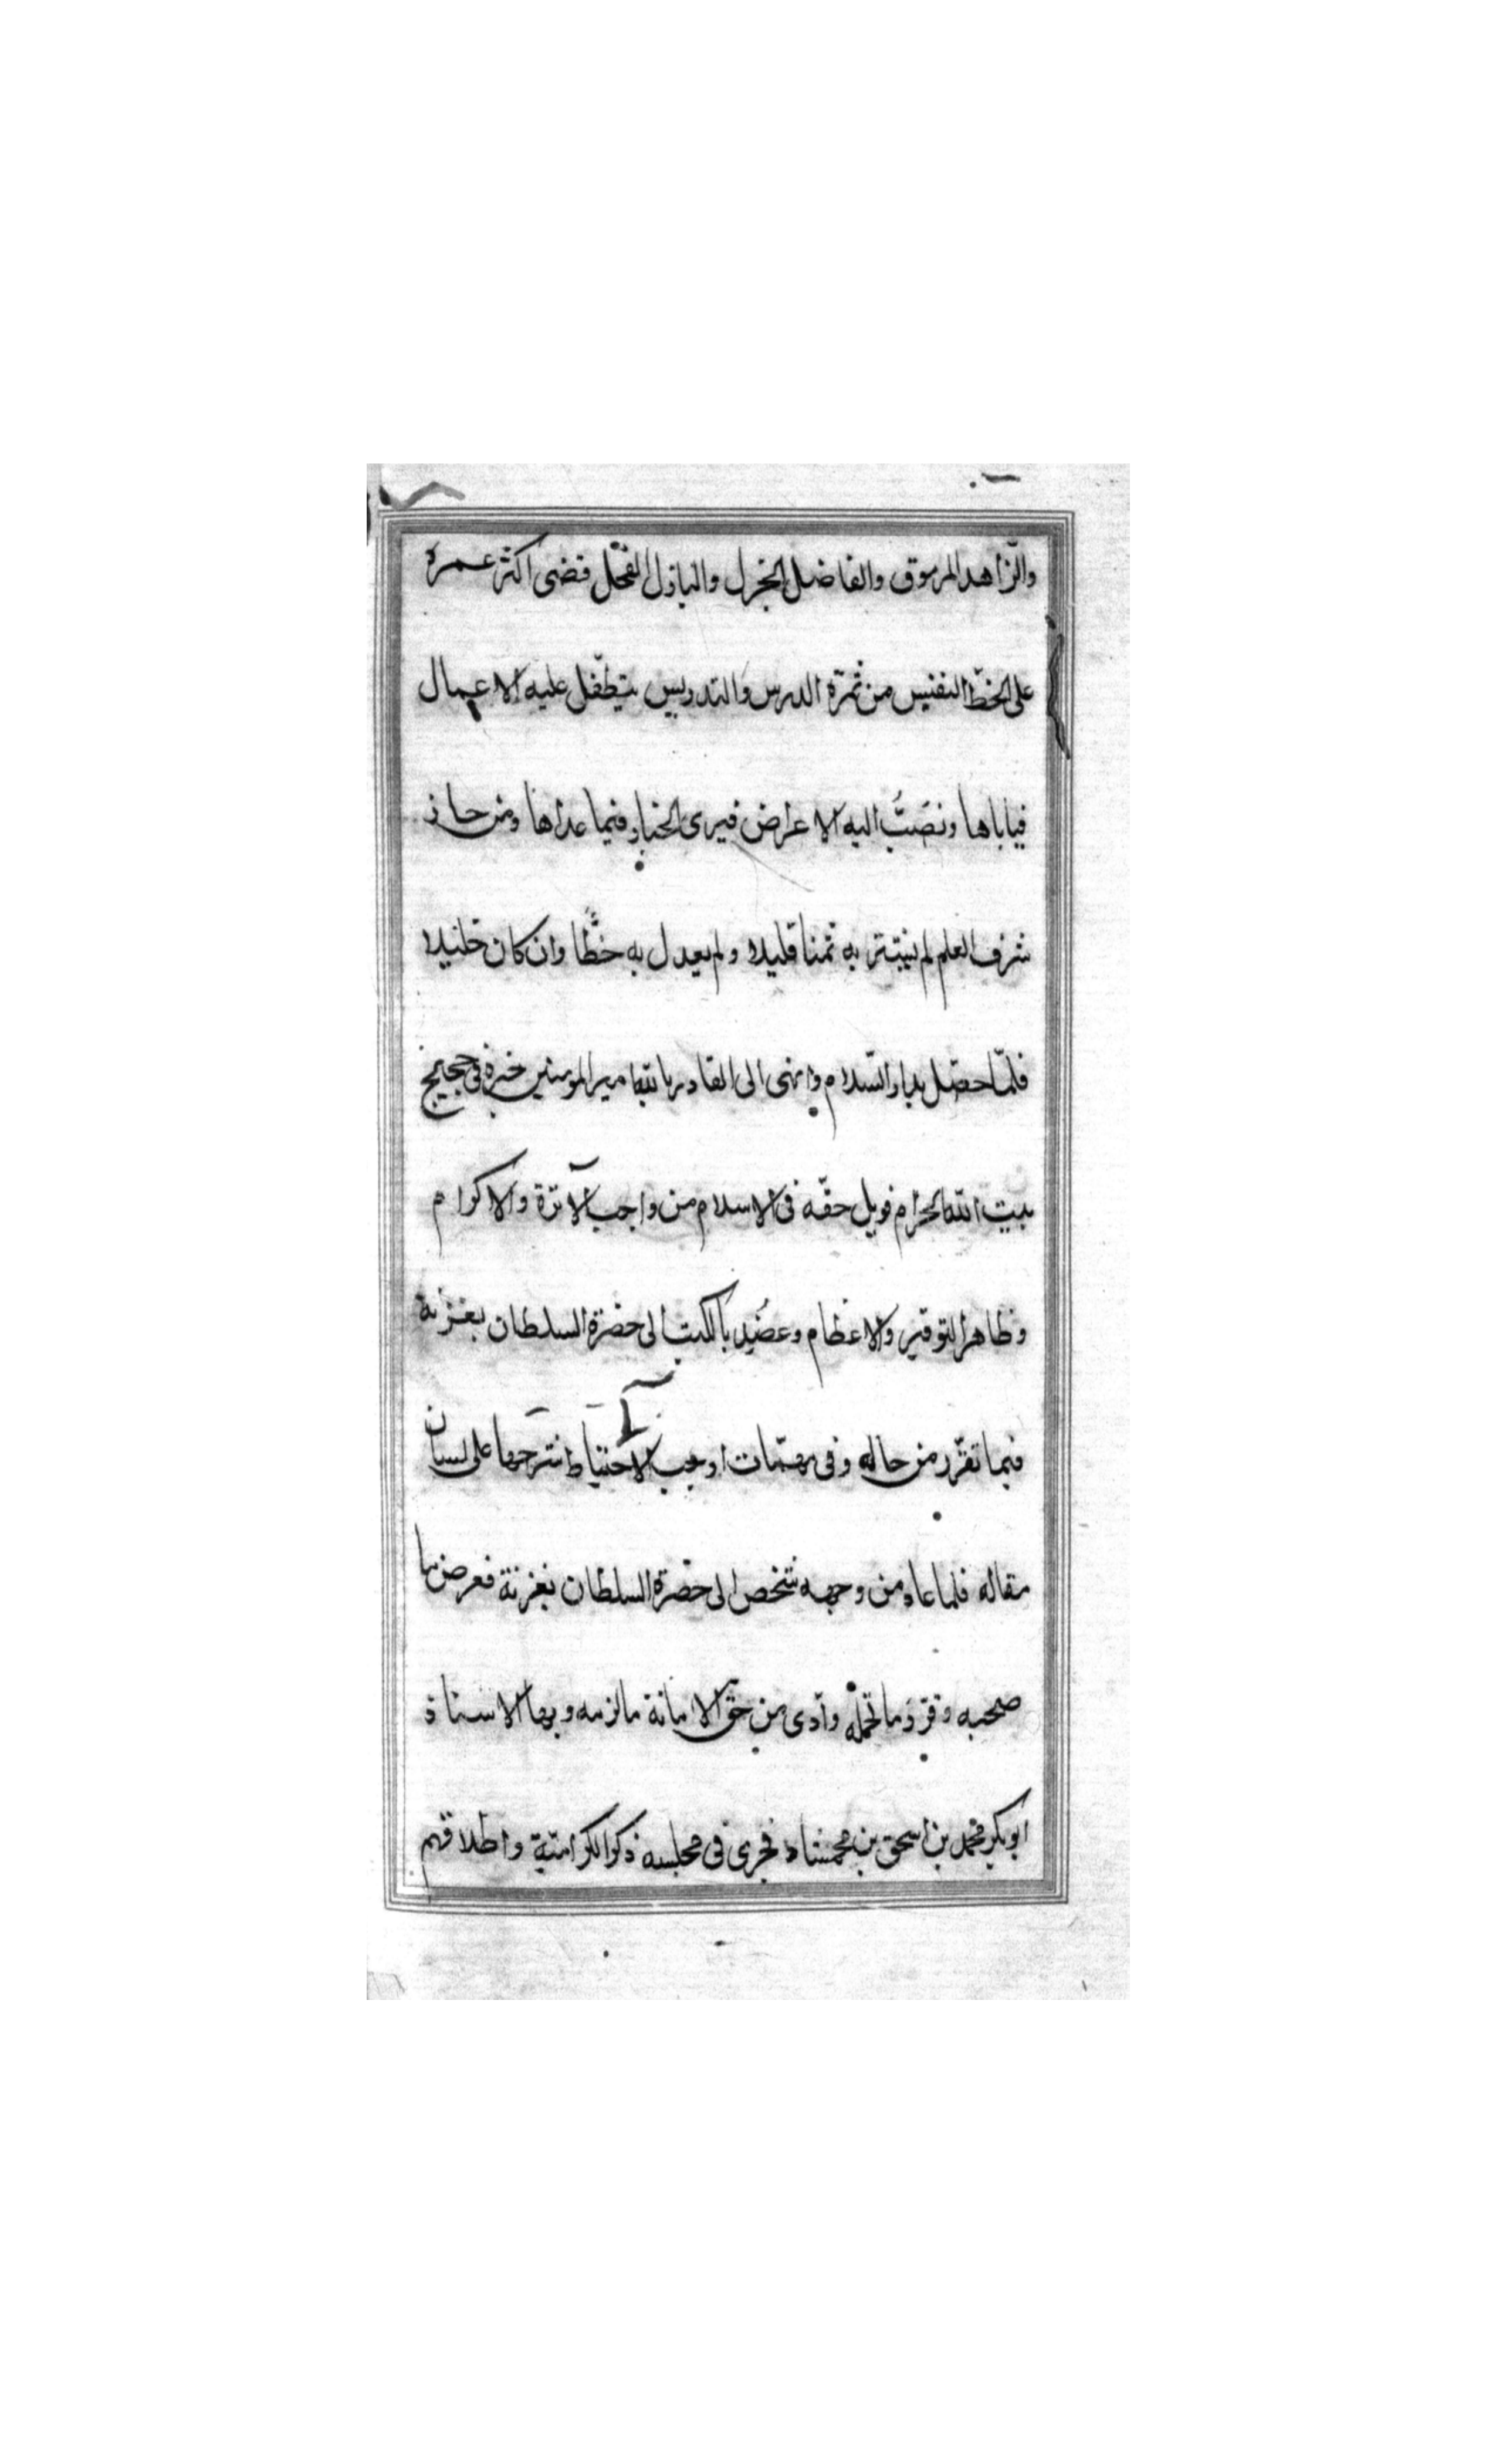 والزّاهد المرموق والفاضل الجزل والباذل الفحل قضى اكثر عمره
على الحظّ النفيس من ثمرة الدرس والتدريس يتطفّل عليه الاعمال
فياباها ونصَبُّ اليه الاعراض فيرى الخيار فيما عداها ومن حاز
شرف العلم لم يشتر به ثمنا قليلا ولم يعدل به حظًّا وان كان جليلا
فلمّا حصل بدار السّلام وانهى الى القادر بالله امير المومنين خبره فى حجيج
بيت الله الحرام قوبل حقّه فى الاسلام من واجب الآثرة والاكرام
وظاهر التوقير والاعظام وعضُد بالكتب الى حضرة السلطان بغزنة
فيما تقرّر من حاله وفى مهمّات اوجب الاحتياط شرحها على لسان
مقاله فلما عاد من وجهه شخص الى حضرة السلطان بغزنة فعرض ما
صحبه وقرّر ما تحمله وادّى من حقّ الامانة ما لزمه وبها الاستاذ
ابو بكر محمد بن اسحق بن محمشاد فجرى فى مجلسه ذكر الكراميّة واطلاقهم